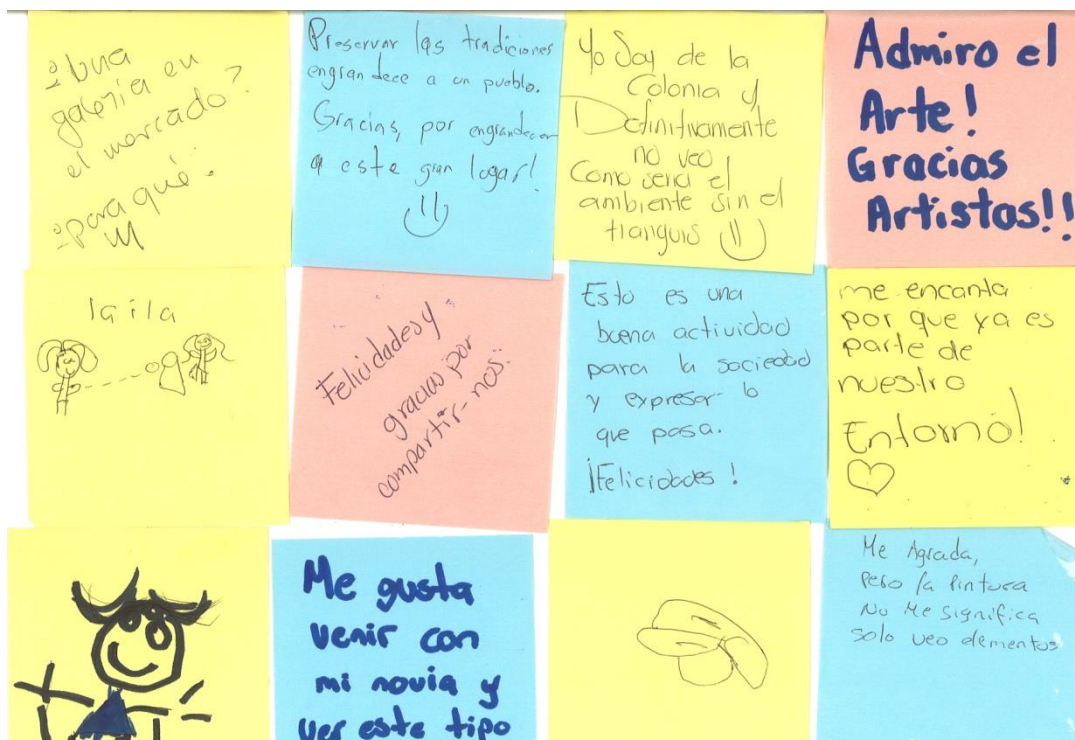 ¿Una
galería en
el mercado?
¿para qué?
Preservar las tradiciones
engrandece a un pueblo.
Gracias, por engrandecer
a este gran lugar!
Yo Soy de la
Colonia y
Definitivamente
no veo
Como seria el
ambiente sin el
tianguis
Admiro el
Arte!
Gracias
Artistas!!
laila
Felicidades y
gracias por
compartir-nos.
Esto es una
buena actividad
para la sociedad
y expresar lo
que pasa.
¡Felicidades!
me encanta
por que ya es
parte de
nuestro
Entorno!
Me gusta
venir con
mi novia y
ver este tipo
Me Agrada,
Pero la Pintura
No Me significa
solo veo elementos